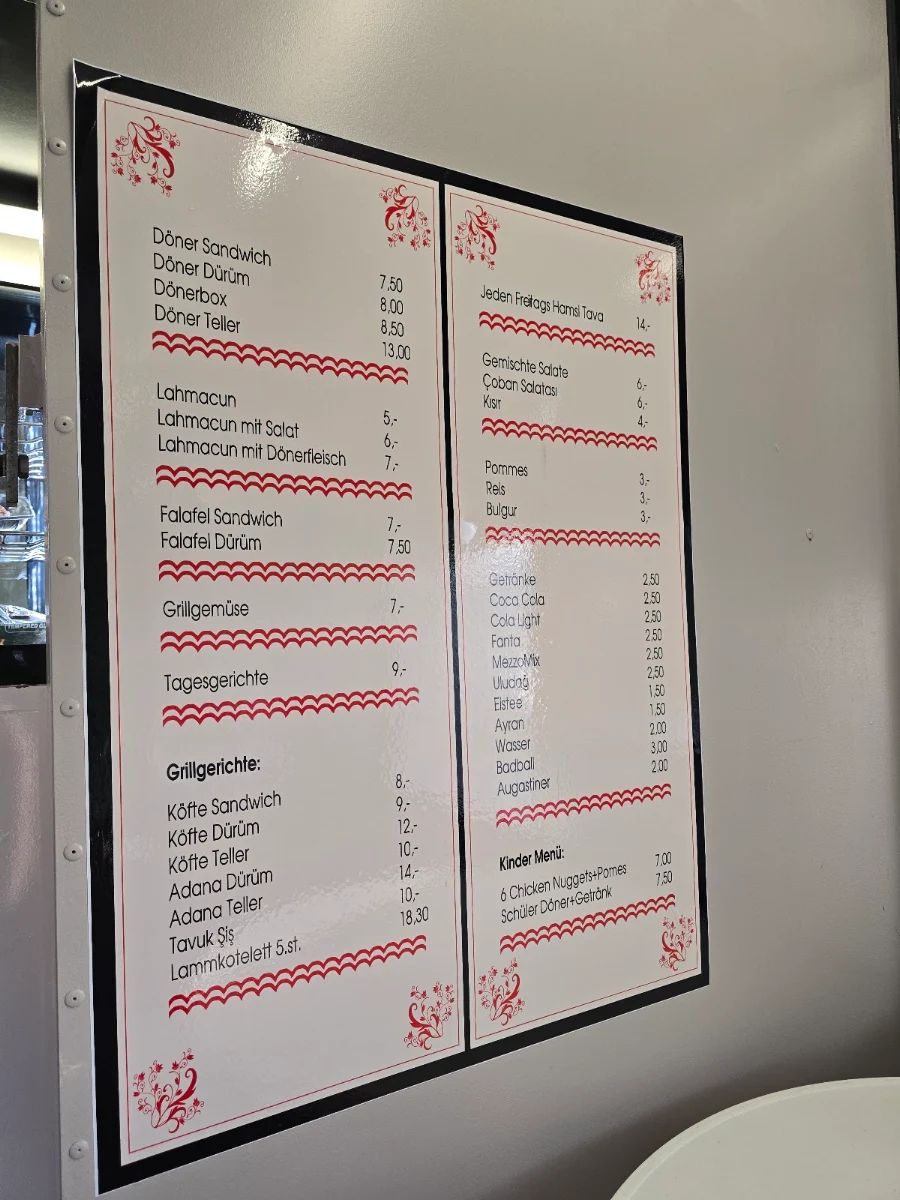 Döner Sandwich 7,50
Döner Dürüm 8,00
Dönerbox 8,50
Döner Teller 13,00
Lahmacun 5,-
Lahmacun mit Salat 6,-
Lahmacun mit Dönerfleisch 7,-
Falafel Sandwich 7,-
Falafel Dürüm 7,50
Grillgemüse 7,-
Tagesgerichte 9,-
Grillgerichte:
Köfte Sandwich 8,-
Köfte Dürüm 9,-
Köfte Teller 12,-
Adana Dürüm 10,-
Adana Teller 14,-
Tavuk Şiş 10,-
Lammkotelett 5.st. 18,30
Jeden Freitags Hamsi Tava 14,-
Gemischte Salate 6,-
Çoban Salatası 6,-
Kısır 4,-
Pommes 3,-
Reis 3,-
Bulgur 3,-
Getränke 2,50
Coca Cola 2,50
Cola Light 2,50
Fanta 2,50
MezzoMix 2,50
Uludağ 2,50
Eistee 1,50
Ayran 1,50
Wasser 2,00
Badball 3,00
Augastiner 2,00
Kinder Menü:
6 Chicken Nuggets+Pomes 7,00
Schüler Döner+Getränk 7,50